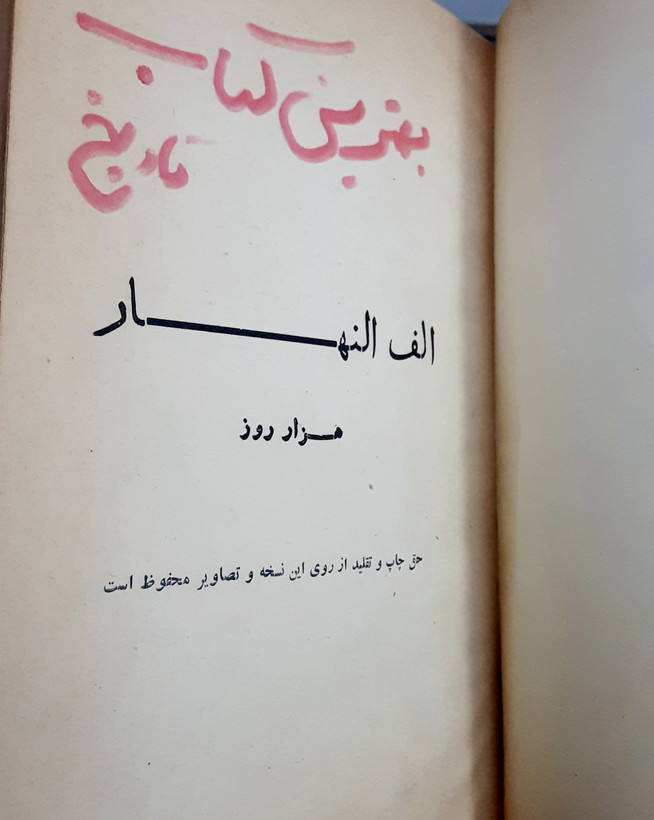 بهترین کتاب
تاریخ
الف النهار
هزار روز
حق چاپ و تقلید از روی این نسخه و تصاویر محفوظ است